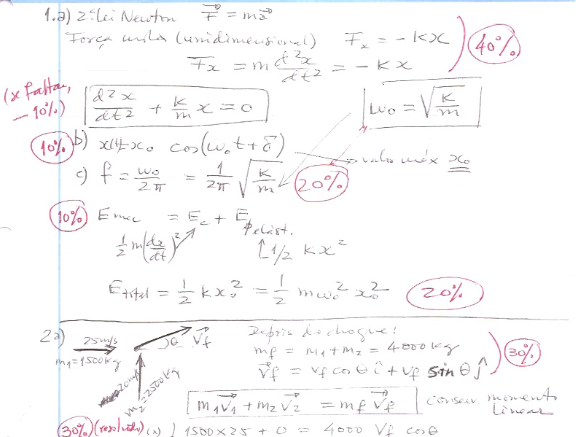 1.a) 2ª Lei Newton $\vec{F} = m\vec{a}$
Força mola (unidimensional) $F_x = -Kx$
$F_x = m\frac{d^2x}{dt^2} = -Kx$ 40%
(x faltar, -10%) $\frac{d^2x}{dt^2} + \frac{k}{m}x = 0$ $\omega_0 = \sqrt{\frac{K}{m}}$
10% b) $x(t) = x_0 \cos(\omega_0 t + \delta)$ → valor máx $x_0$
c) $f = \frac{\omega_0}{2\pi} = \frac{1}{2\pi}\sqrt{\frac{K}{m}}$ 20%
10% $E_{mec} = E_c + E_{p\,elást.}$
$\frac{1}{2}m\left(\frac{dx}{dt}\right)^2$ $1/2\,Kx^2$
$E_{total} = \frac{1}{2}kx_0^2 = \frac{1}{2}m\omega_0^2 x_0^2$ 20%
2a) 25 m/s θ $\vec{v}_f$ Depois do choque:
$m_1 = 1500 kg$ $m_f = m_1 + m_2 = 4000 kg$
20 m/s $\vec{v}_f = v_f \cos\theta\,\hat{i} + v_f \sin\theta\,\hat{j}$ 30%
$m_2 = 2500 kg$ $m_1\vec{v}_1 + m_2\vec{v}_2 = m_f\vec{v}_f$ conserv. momento linear
30% (resolvido) (x) 1500×25 + 0 = 4000 $v_f \cos\theta$